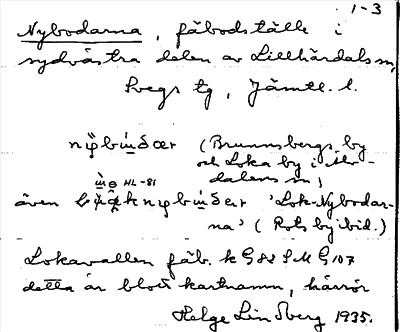 1-3
Nybodarna, fäbodställe i
sydvästra delen av Lillhärdals sn,
Svegs tg, Jämtl. l.
(Brunnsbergs by
och Loka by i Älv-
dalens sn)
HL-81
även 'Lok-Nybodar-
na' (Rots by ibid.)
Lokavallen fäb. k G82 SM G107
detta är blott kartnamn, härrör
Helge Lindberg 1935.